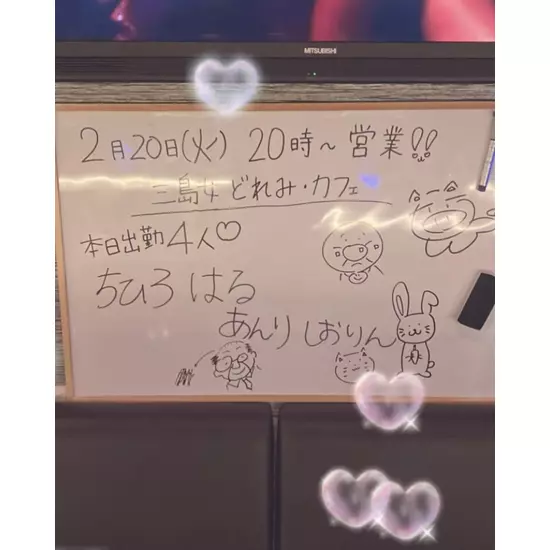 MITSUBISHI
2月20日(火) 20時～営業!!
三島 どれみ・カフェ
本日出勤4人♡
ちひろ はる
あんり しおりん